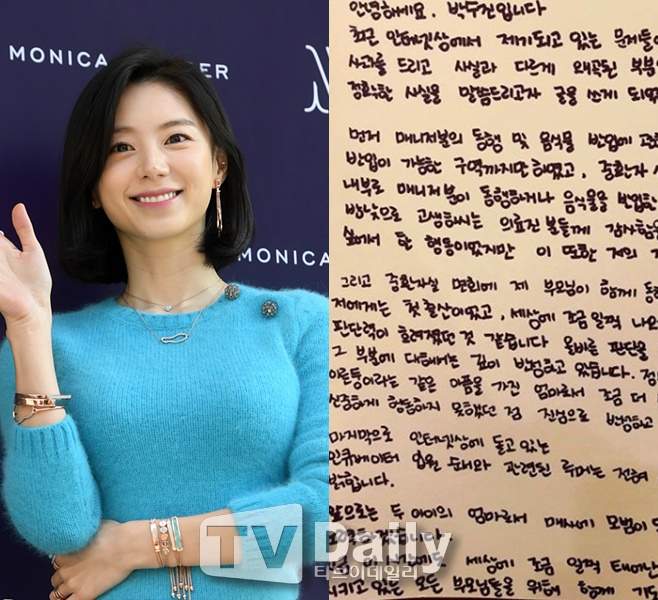 MONICA
MONICA
안녕하세요. 박수진입니다
최근 인터넷상에서 제기되고 있는 문제들에
사과를 드리고 사실과 다르게 왜곡된 부분
정확한 사실을 말씀드리고자 글을 쓰게 되었
먼저 매니저분의 동행 및 음식물 반입에 관
반입이 가능한 구역까지만 하였고, 중환자
내부로 매니저분이 동행하거나 음식물을 반입한
밤낮으로 고생하시는 의료진 분들께 감사함을
실에서 한 행동이었지만 이 또한 저의
그리고 중환자실 면회에 제 부모님이 함께 동
저에게는 첫 출산이었고, 세상에 조금 일찍 나오
판단력이 흐려졌던 것 같습니다 올바른 판단을
그 부분에 대해서는 깊이 반성하고 있습니다.
이른둥이라는 같은 아픔을 가진 엄마로서 조금 더
신중하게 행동하지 못했던 점 진심으로 반성하고
마지막으로 인터넷상에 돌고있는
인큐베이터 입원 순서와 관련된 루머는 전혀
밝힙니다.
앞으로는 두 아이의 엄마로서 매사에 모범이
세상에 조금 일찍 태어난
지키고 있는 모든 부모님들을 위해 함께
TV Daily
티브이데일리